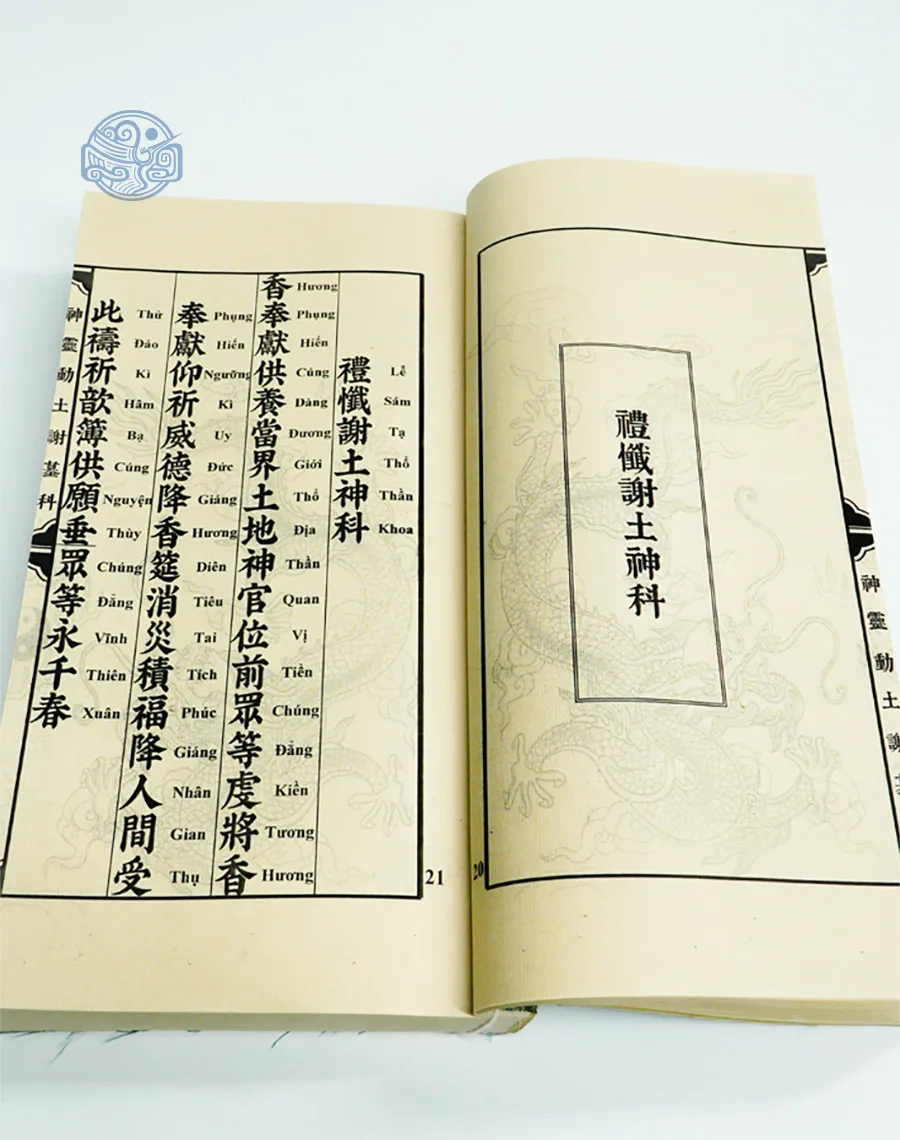 禮懺謝土神科
神靈動土謝
20
禮懺謝土神科
Lễ Sám Tạ Thổ Thần Khoa
香奉獻供養當界土地神官位前眾等虔將香
Hương Phụng Hiến Cúng Dàng Dương Giới Thổ Địa Thần Quan Vị Tiền Chúng Đẳng Kiền Tương Hương
奉獻仰祈威德降香筵消災積福降人間受
Phụng Hiến Ngưỡng Kì Uy Đức Giáng Hương Diên Tiêu Tai Tích Phúc Giáng Nhân Gian Thụ
此禱祈歆簿供願垂眾等永千春
Thử Đảo Kì Hâm Bạ Cúng Nguyện Thùy Chúng Đẳng Vĩnh Thiên Xuân
神靈動土謝墓科
21